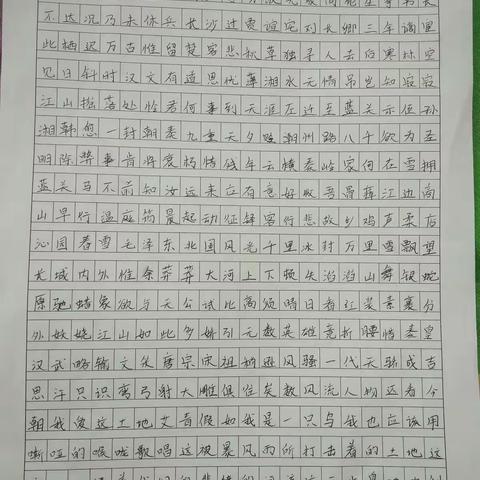 不达况乃未休兵长沙过贾谊宅刘长卿三年谪
此栖迟万古惟留楚客悲秋草独寻人去后寒林空
见日斜时汉文有道恩犹薄湘水无情吊岂知寂寂
江山摇落处怜君何事到天涯左迁至蓝关示侄孙
湘韩愈一封朝奏九重天夕贬潮州路八千欲为圣
明除弊事肯将衰朽惜残年云横秦岭家何在雪拥
蓝关马不前知汝远来应有意好收吾骨瘴江边商
山早行温庭筠晨起动征铎客行悲故乡鸡声
沁园春雪毛泽东北国风光千里冰封万里雪飘望
长城内外惟余莽莽大河上下顿失滔滔山舞银蛇
原驰蜡象欲与天公试比高须晴日看红装素裹分
外妖娆江山如此多娇引无数英雄竞折腰惜秦皇
汉武略输文采唐宗宋祖稍逊风骚一代天骄成吉
思汗只识弯弓射大雕俱往矣数风流人物还看今
朝我爱这土地艾青假如我是一只鸟我也应该用
嘶哑的喉咙歌唱这被暴风雨所打击着的土地这